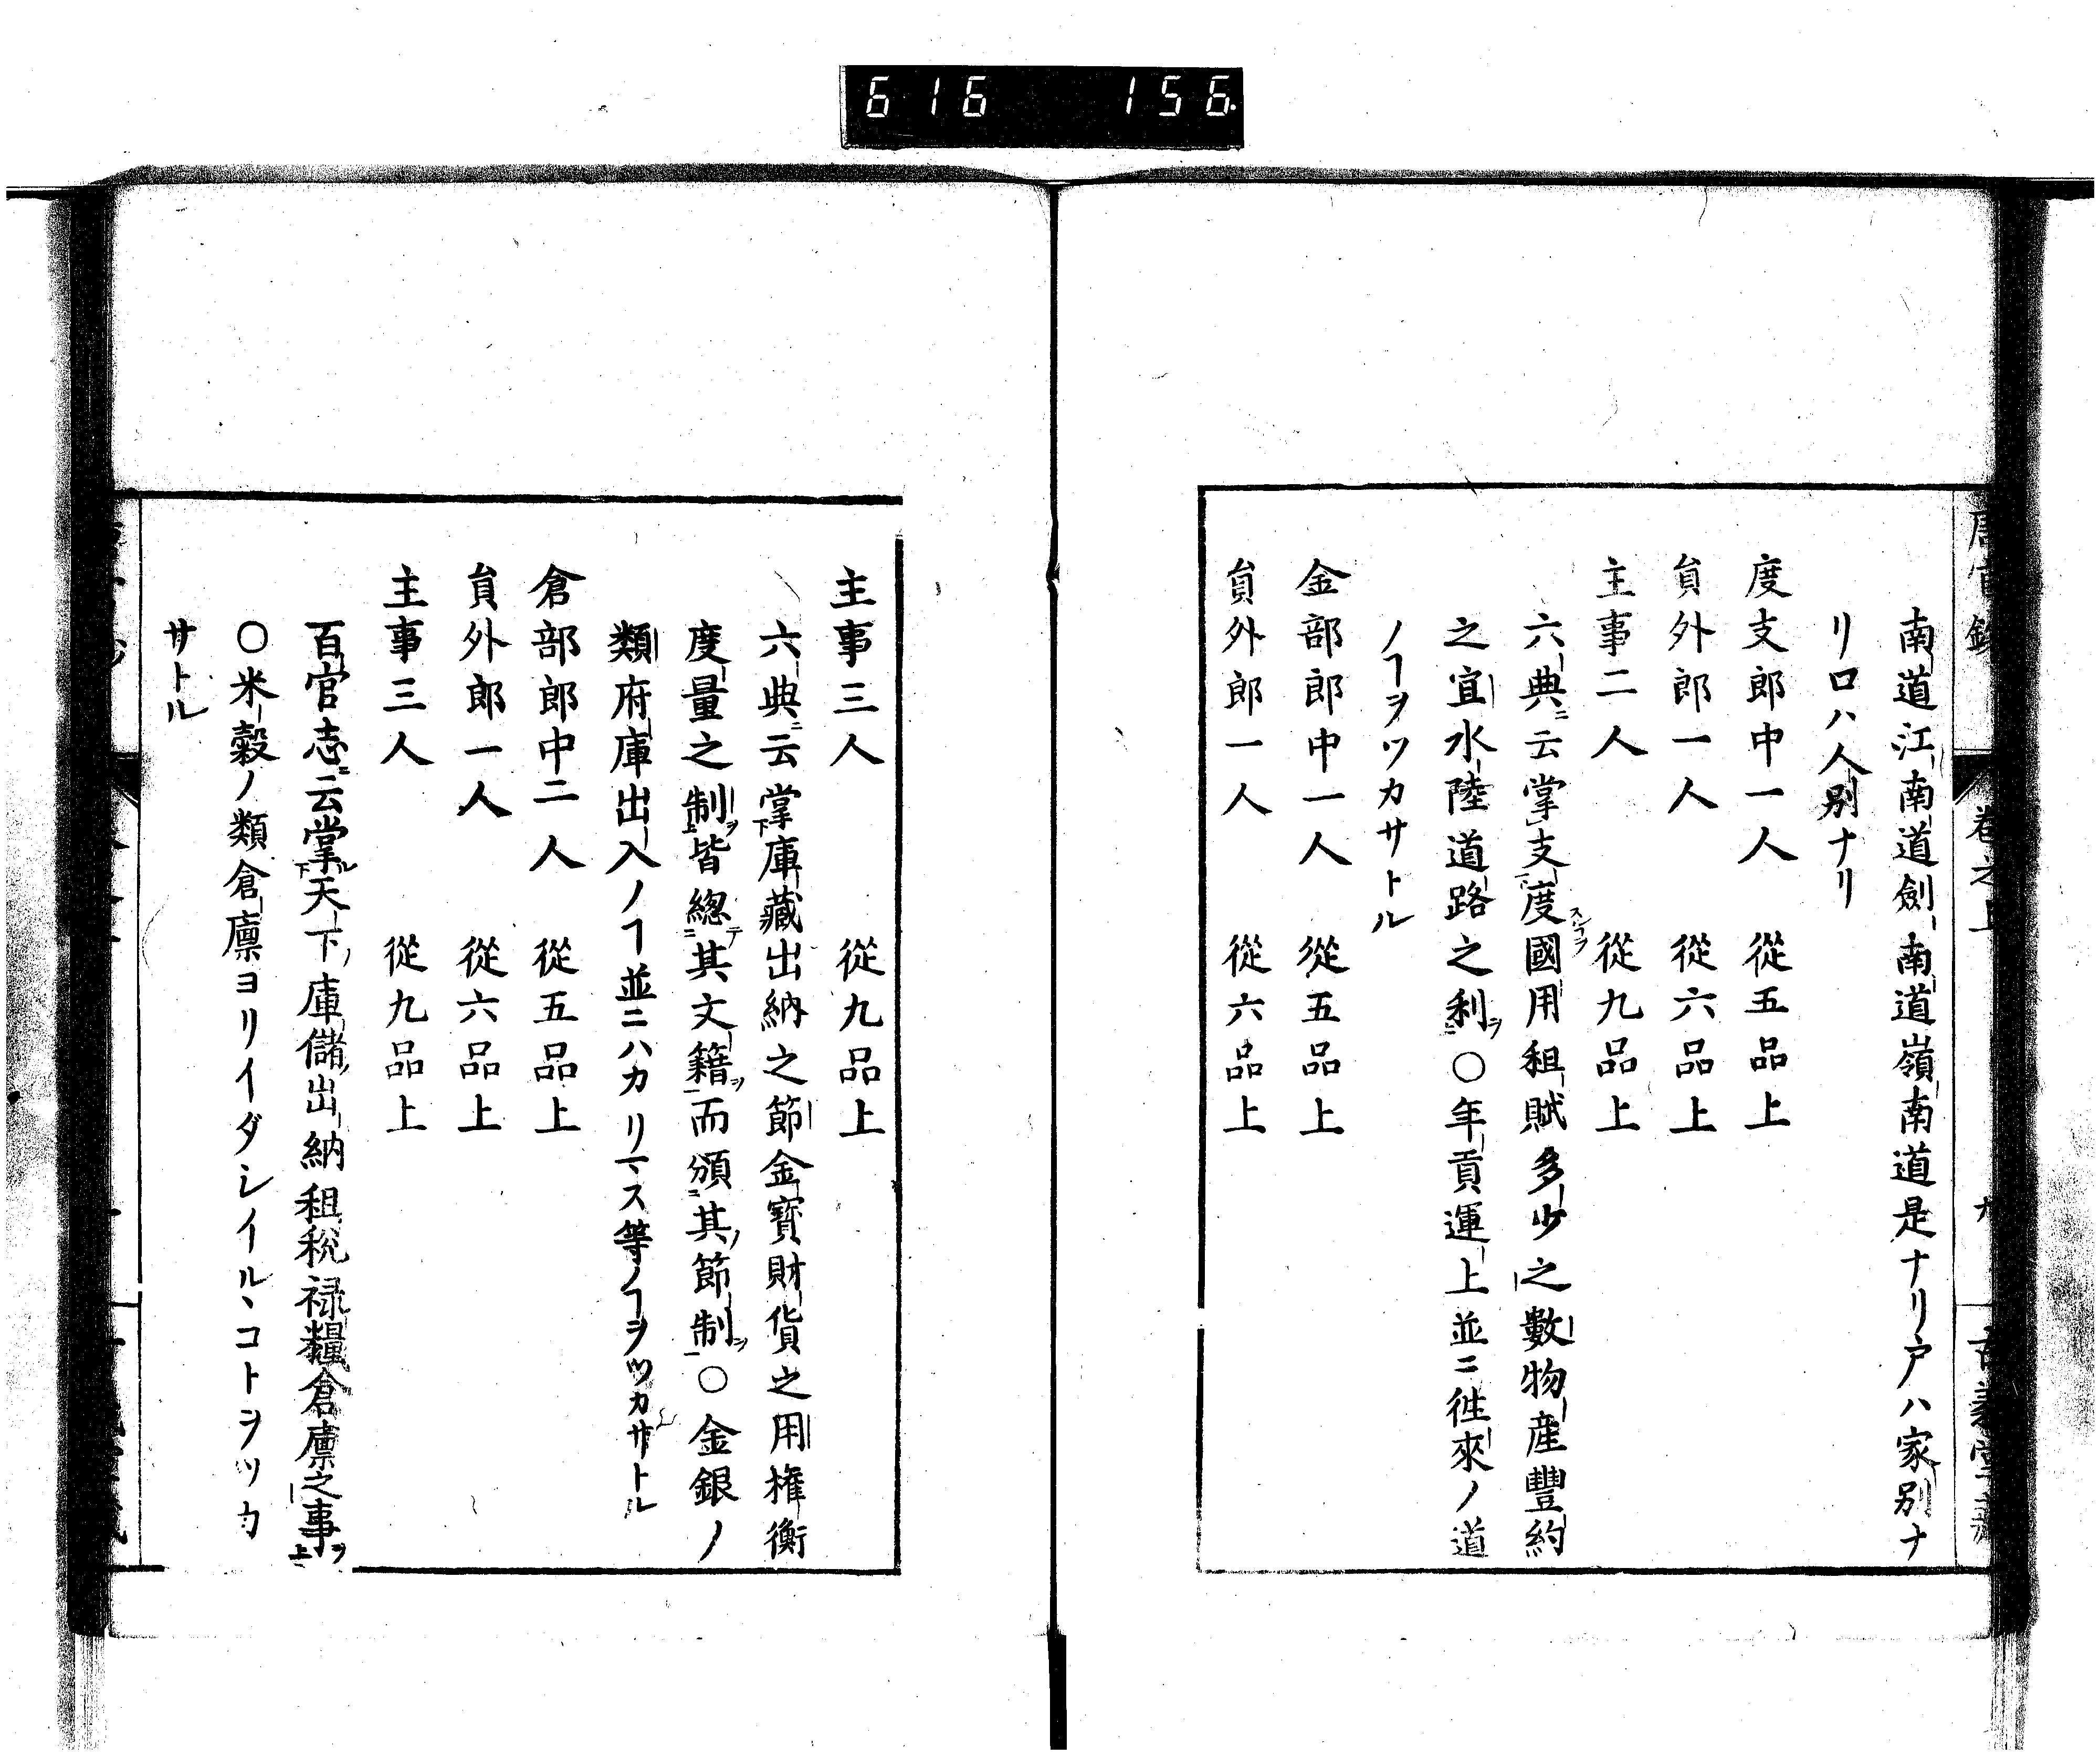 616 156
南道江南道劍南道嶺南道是ナリ戸ハ家別ナ
リロハ人別ナリ
度支郎中一人 從五品上
貟外郎一人 從六品上
主事二人 從九品上
六典ニ云掌支度國用租賦多少之數物産豐約
之宜水陸道路之利ヲ○年貢運上並ニ徃來ノ道
ノヿヲツカサトル
金部郎中一人 從五品上
貟外郎一人 從六品上
主事三人 從九品上
六典ニ云掌庫藏出納之節金寳財貨之用権衡
度量之制ヲ皆緫テ其文籍ヲ而頒其節制ヲ○金銀ノ
類府庫出入ノヿ並ニハカリマス等ノヿヲツカサトル
倉部郎中二人 從五品上
貟外郎一人 從六品上
主事三人 從九品上
百官志ニ云掌ル天下庫儲出納租税禄糧倉廪之事ヲ
○米穀ノ類倉廪ヨリイダシイルヽコトヲツカ
サトル